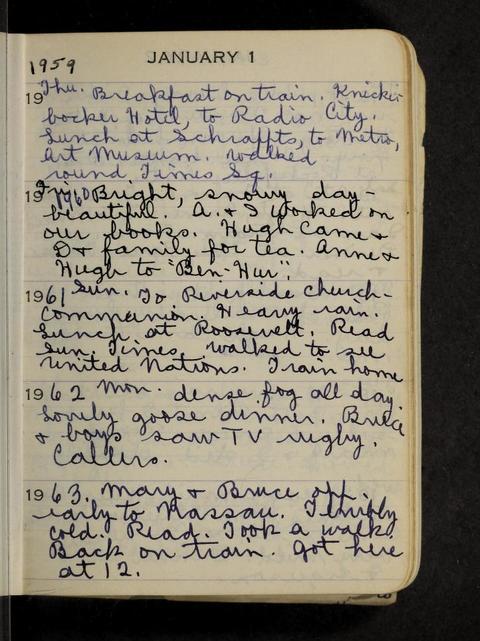 JANUARY 1
1959
19 Thu. Breakfast on train. Knicker-
bocker Hotel, to Radio City.
Lunch at Schraffts, to Metro,
Art Museum. walked
round Times Sq.
19 Fri 1960 Bright, snowy day -
beautiful. A. & I worked on
our books. Hugh came &
D & family for tea. Anne &
Hugh to "Ben-Hur".
1961 Sun. To Riverside Church -
Communion. Heavy rain.
Lunch at Roosevelt. Read
Sun. Times. walked to see
United Nations. Train home
1962 Mon. dense fog all day.
Lovely goose dinner. Bruce
& boys saw TV rugby.
Callers.
1963. Mary & Bruce off
early to Nassau. Terribly
cold. Read. Took a walk.
Back on train. Got here
at 12.